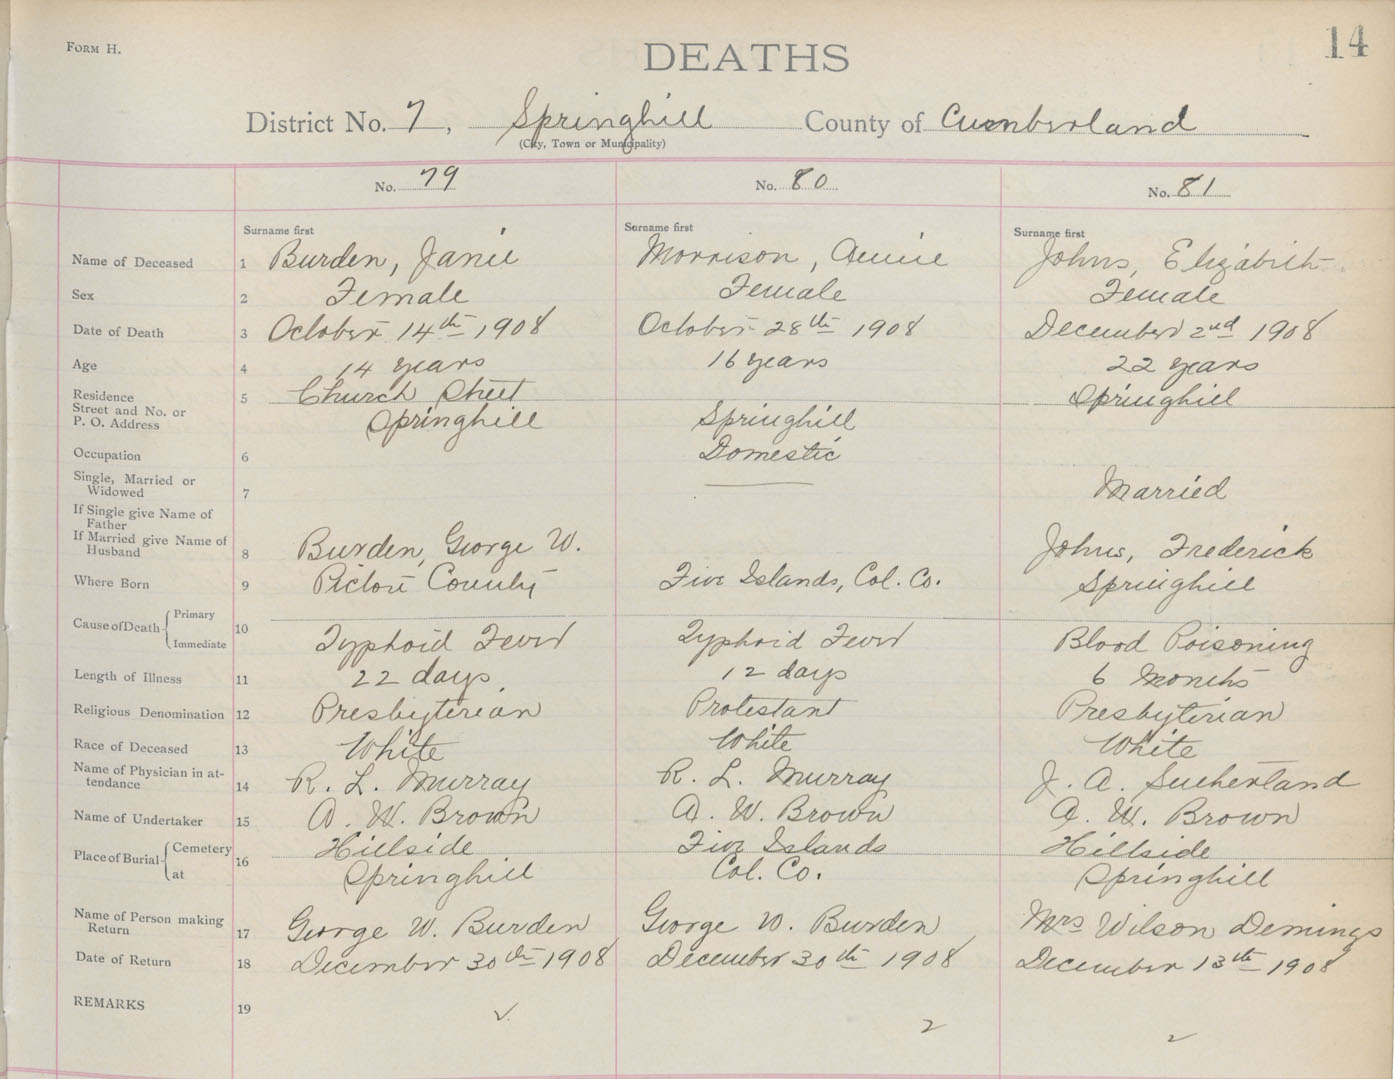 Form H.
DEATHS
14
District No. 7, Springhill County of Cumberland
(City, Town or Municipality)
No. 79 No. 80 No. 81
Surname first Surname first Surname first
Name of Deceased 1 Burden, Janie Morrison, Annie Johns, Elizabeth
Sex 2 Female Female Female
Date of Death 3 October 14th 1908 October 28th 1908 December 2nd 1908
Age 4 14 years 16 years 22 years
Residence
Street and No. or
P. O. Address 5 Church Street Springhill
Springhill Springhill
Occupation 6 Domestic
Single, Married or
Widowed 7 Married
If Single give Name of
Father
If Married give Name of
Husband 8 Burden, George W. Johns, Frederick
Where Born 9 Pictou County Five Islands, Col. Co. Springhill
Cause of Death Primary
Immediate 10 Typhoid Fever Typhoid Fever Blood Poisoning
Length of Illness 11 22 days 12 days 6 Months
Religious Denomination 12 Presbyterian Protestant Presbyterian
Race of Deceased 13 White White White
Name of Physician in at-
tendance 14 R. L. Murray R. L. Murray J. A. Sutherland
Name of Undertaker 15 A. W. Brown A. W. Brown A. W. Brown
Place of Burial Cemetery 16 Hillside Five Islands Hillside
at Springhill Col. Co. Springhill
Name of Person making
Return 17 George W. Burden George W. Burden Mrs Wilson Demings
Date of Return 18 December 30th 1908 December 30th 1908 December 13th 1908
REMARKS 19
2
2